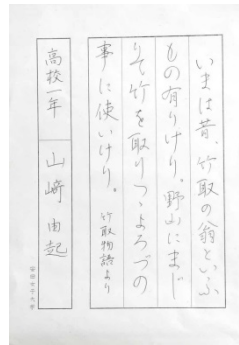 いまは昔、竹取の翁といふ
もの有りけり。野山にまじ
りて竹を取りつゝよろづの
事に使いけり。
竹取物語より
高校一年 山﨑由起